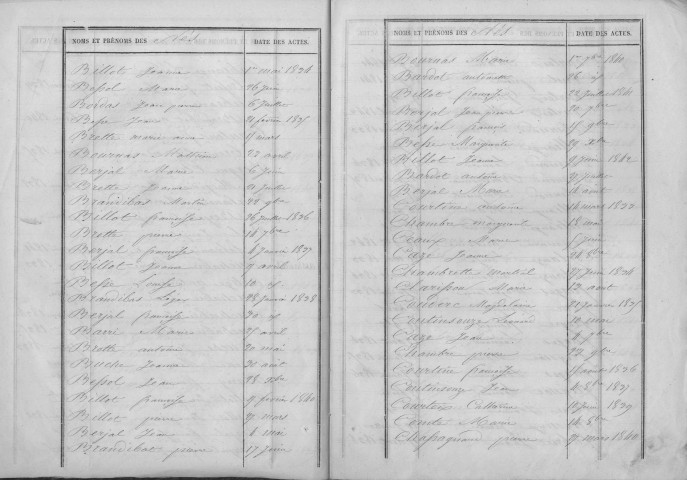 NOMS ET PRÉNOMS DES DATE DES ACTES.
Billot Jeanne 1er mai 1834
Bepol Marie 26 Juin
Jean pierre 6 Juillet
Besse Jean 21 février 1835
Brette marie 11 mars
Bournas Mathieu 27 avril
Borjal Marie 6 Juin
Brette Jeanne 21 Juillet
Brandibas Martin 22 9bre
Billot françoise 26 Juillet 1836
Brette pierre 16 9bre
Borjal françoise 6 Janvier 1837
Billot Jeanne 9 avril
Besse Louise 10 id
Brandibas Léger 28 Janvier 1838
Borjal françoise 30 id
Barri Marie 25 avril
Brette antoine 20 mai
Buche Jeanne 30 août
Bepol Jean 28 Xbre
Billot françoise 9 février 1840
Billot pierre 27 mars
Borjal Jean 6 mai
Brandibat pierre 17 Juin
NOMS ET PRÉNOMS DES DATE DES ACTES.
Bournas Marie 1er 9bre 1840
Bardot antoinette 26 id
Billot françoise 22 Juillet 1841
Borjal Jean pierre 20 9bre
Borjal 9bre
Besse Marguerite Xbre
Billot Jeanne 9 Juin 1842
Bardot antoine 27 Juillet
Borjal Marie août
Courtine antoine 16 mars 1833
Chambre marguerite 18 mai
Ceaux Marie Juin
Caze Jeanne 24 8bre
Chambrette martial 27 Juin 1834
Clarisson Marie 12 août
Magdelaine 22 Janvier 1835
Continsouze Léonard 10 mai
Caze Jean 6 9bre
Chambre pierre 22 9bre
Courtine françoise 1836
Continsouze Jean 4 8bre 1837
Courtine Catherine 18 Juin 1839
Comte Marie 14 8bre
Chassagnard pierre 27 mars 1840